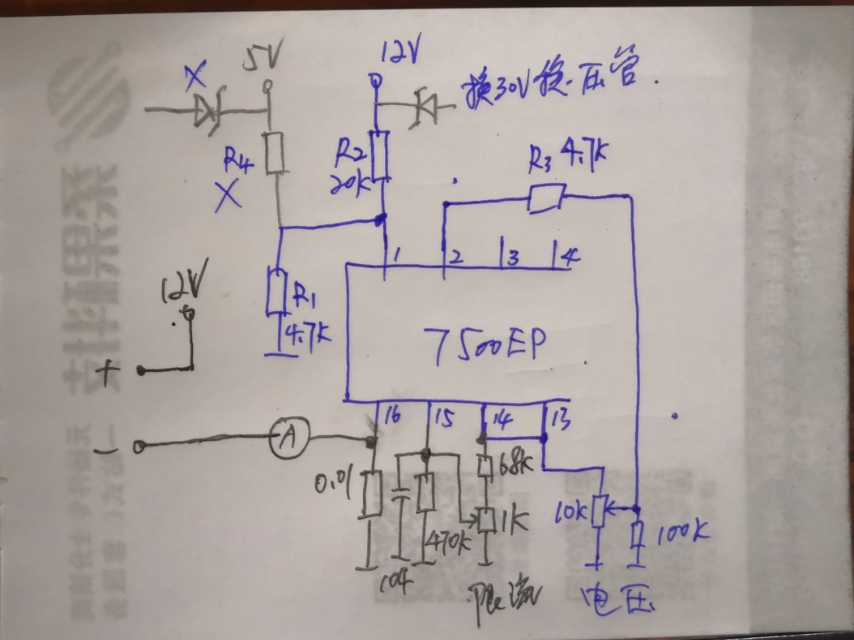 X 5V 12V 换30V稳压管.
R4 X
R2 20K
R3 4.7K
1 2 3 4
R1 4.7K
12V
7500EP
+
-
A
16 15 14 13
0.01
104
470K
68K
1K
10K
100K
限流
电压